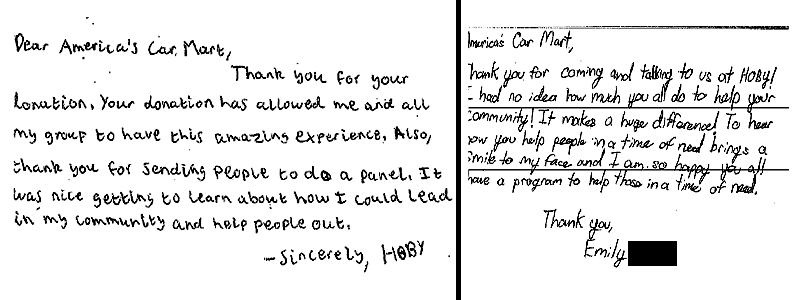 Dear America's Car Mart,
Thank you for your
donation. Your donation has allowed me and all
my group to have this amazing experience. Also,
thank you for sending people to do a panel. It
was nice getting to learn about how I could lead
in my community and help people out.
-Sincerely, HOBY
America's Car Mart,
Thank you for coming and talking to us at HOBY!
I had no idea how much you all do to help your
community! It makes a huge difference! To hear
how you help people in a time of need brings a
smile to my face and I am so happy you all
have a program to help those in a time of need.
Thank you,
Emily